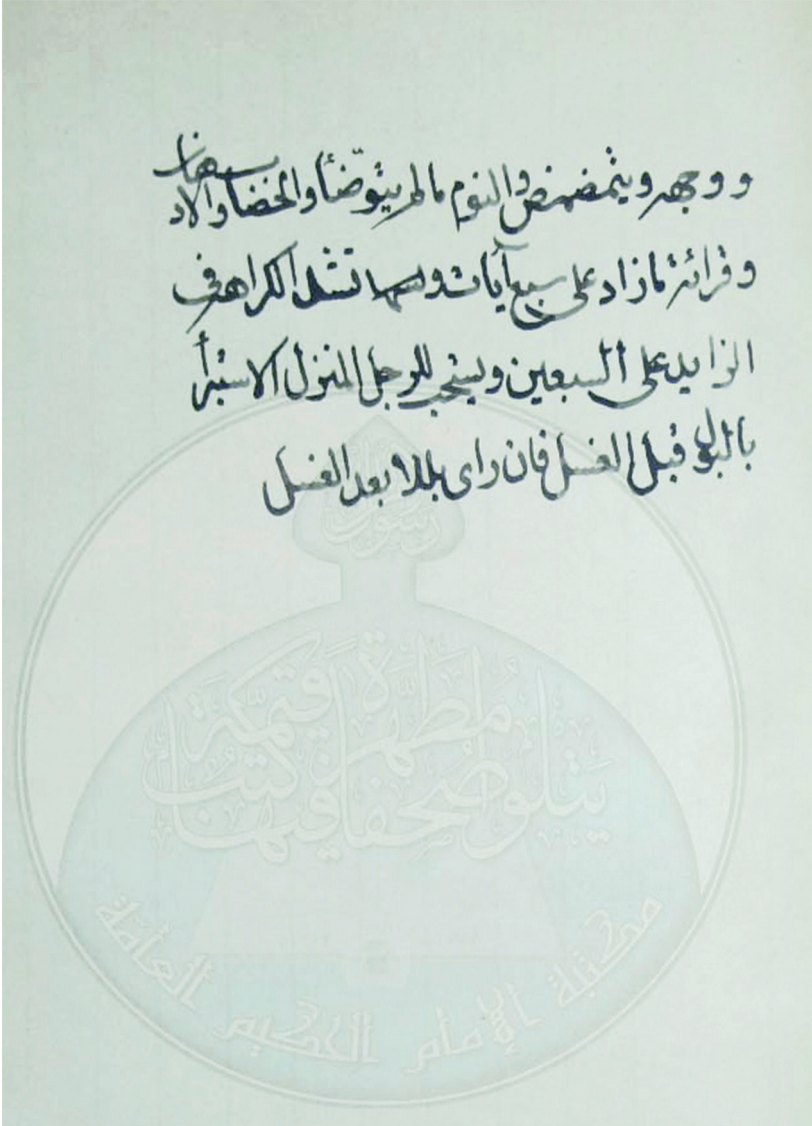 ووجهه ويتمضمض والنوم ما لم يتوضّأ والخضاب والادهان
وقرائة ما زاد على سبع آيات و تشتد الكراهة في
الزايد على السبعين ويستحب للرجل المنزل الاستبرأ
بالبول قبل الغسل فان راى بللا بعد الغسل
رسول
يتلو صحفا مطهرة فيها كتب قيمة
مكتبة الإمام الحكيم العامة